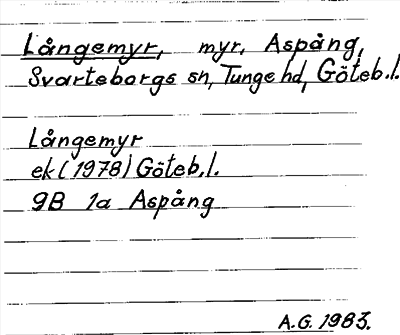 Långemyr, myr, Aspång,
Svarteborgs sn, Tunge hd, Göteb.l.
Långemyr
ek (1978) Göteb.l.
9B 1a Aspång
A.G. 1983.